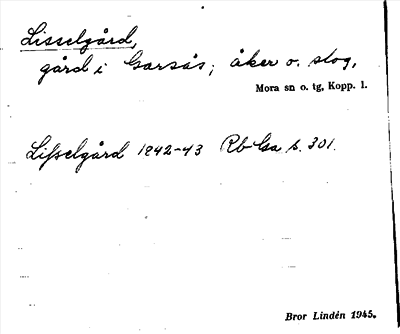 Lisselgård,
gård i Garsås; åker o. slog,
Mora sn o. tg, Kopp. l.
Lifselgård 1842-43 Rb Ga s. 301.
Bror Lindén 1945.